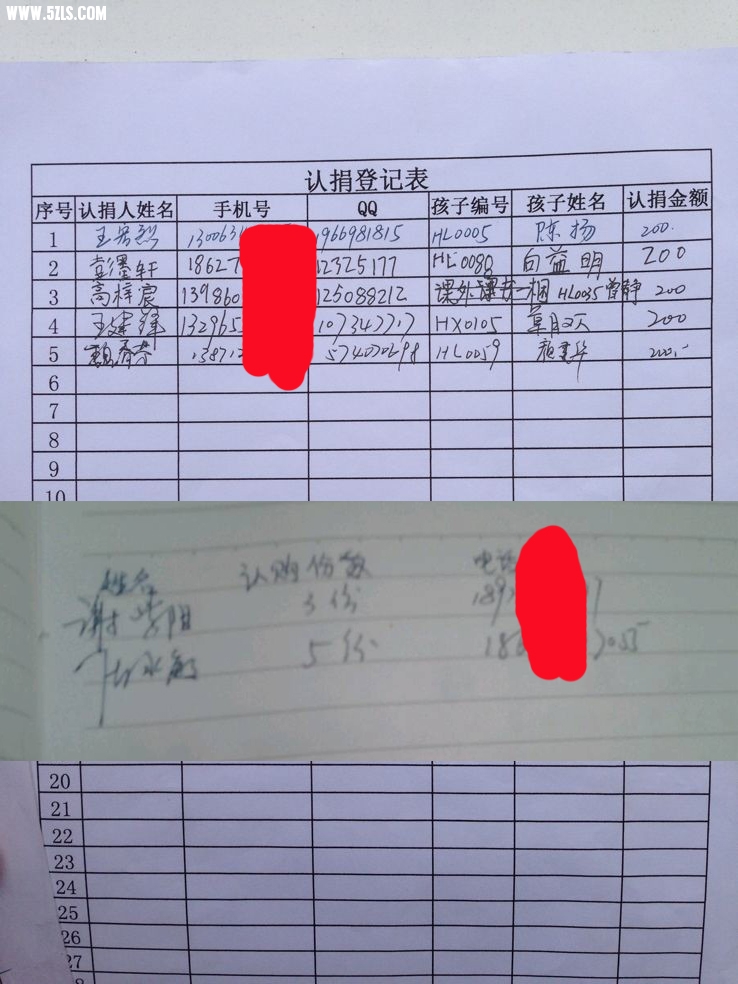 WWW.5ZLS.COM
认捐登记表
序号 认捐人姓名 手机号 QQ 孩子编号 孩子姓名 认捐金额
1 王 130063 1966981815 HL0005 陈扬 200.
2 彭墨轩 18627 12325177 HL0080 向益明 200
3 高梓宸 139860 125088212 课外 一捆 HL0035 曾静 200
4 王建 132965 107347717 HX0105 覃 200
5 13871 HL0059 200.-
6
7
8
9
10
姓名 认购份数 电话
谢 阳 3份 189
5份 18 7055
20
21
22
23
24
25
26
27